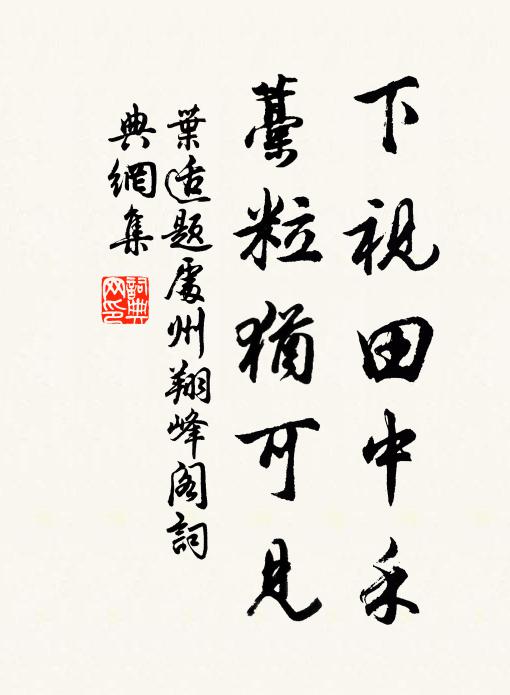 下視田中禾
藁粒猶可見
葉适題處州翔峰阁詞
典網集
詞典网印